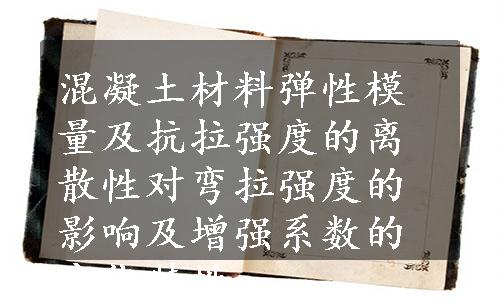 混凝土材料弹性模
量及抗拉强度的离
散性对弯拉强度的
影响及增强系数的